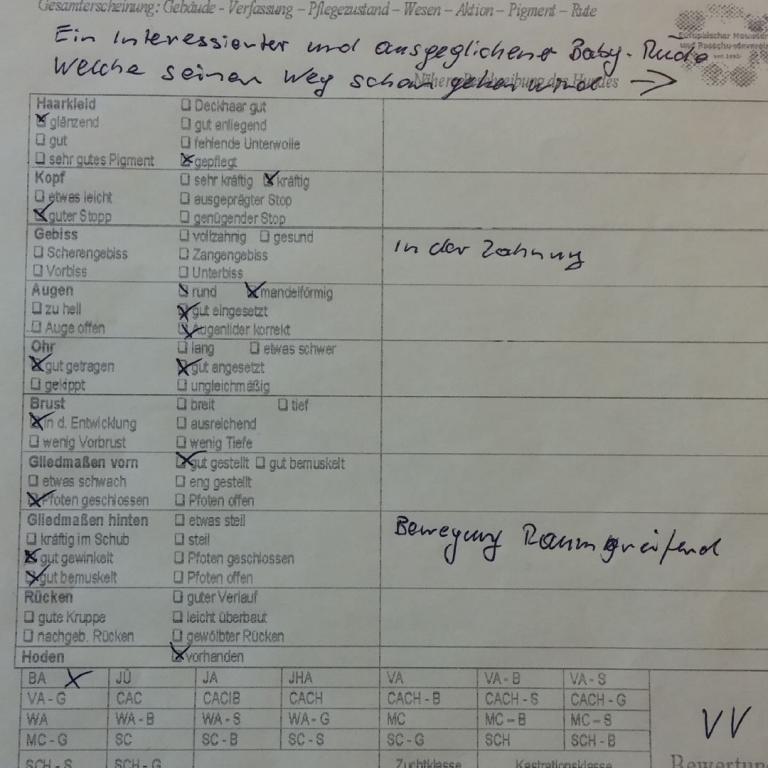 Gesamterscheinung: Gebäude - Verfassung – Pflegezustand – Wesen – Aktion – Pigment – Rute
Ein Interessierter und ausgeglichener Baby-Rüde
Welche seinen Weg schon gehen wird
Nähere Beschreibung des Hundes
Haarkleid ❑ Deckhaar gut
☒ glänzend ❑ gut anliegend
❑ gut ❑ fehlende Unterwolle
❑ sehr gutes Pigment ☒ gepflegt
Kopf ❑ sehr kräftig ☒ kräftig
❑ etwas leicht ❑ ausgeprägter Stop
☒ guter Stopp ❑ genügender Stop
Gebiss ❑ vollzahnig ❑ gesund
In der Zahnung
❑ Scherengebiss ❑ Zangengebiss
❑ Vorbiss ❑ Unterbiss
Augen ☒ rund ☒ mandelförmig
❑ zu hell ☒ gut eingesetzt
❑ Auge offen ☒ Augenlider korrekt
Ohr ❑ lang ❑ etwas schwer
☒ gut getragen ☒ gut angesetzt
❑ gekippt ❑ ungleichmäßig
Brust ❑ breit ❑ tief
☒ in d. Entwicklung ❑ ausreichend
❑ wenig Vorbrust ❑ wenig Tiefe
Gliedmaßen vorn ☒ gut gestellt ❑ gut bemuskelt
❑ etwas schwach ❑ eng gestellt
☒ Pfoten geschlossen ❑ Pfoten offen
Gliedmaßen hinten ❑ etwas steil
Bewegung Raumgreifend
❑ kräftig im Schub ❑ steil
☒ gut gewinkelt ❑ Pfoten geschlossen
☒ gut bemuskelt ❑ Pfoten offen
Rücken ❑ guter Verlauf
❑ gute Kruppe ❑ leicht überbaut
❑ nachgeb. Rücken ❑ gewölbter Rücken
Hoden ☒ vorhanden
BA X JÜ JA JHA VA VA - B VA - S
VA - G CAC CACIB CACH CACH - B CACH - S CACH - G
WA WA - B WA - S WA - G MC MC – B MC – S
VV
MC - G SC SC - B SC - S SC - G SCH SCH - B
SCH - S SCH - G Zuchtklasse Kastrationsklasse Bewertung